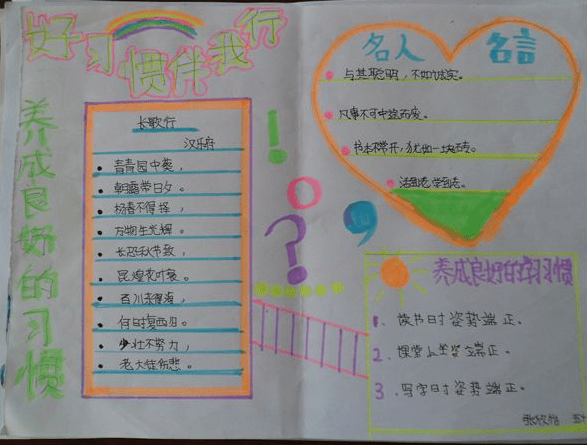 好习惯伴我行
养成良好的习惯
长歌行
汉乐府
青青园中葵，
朝露带日夕。
杨春不得择，
万物生光辉。
长恐秋节致，
昆煌花叶衰。
百川东得海，
何时复西归。
少壮不努力，
老大徒伤悲。
！
？
名人 名言
与其聪明，不如诚实。
凡事不可中途而废。
书本不常开，犹如一块砖。
活到老，学到老。
养成良好的学习惯
1. 读书时姿势端正。
2. 课堂上坐姿端正。
3. 写字时姿势端正。